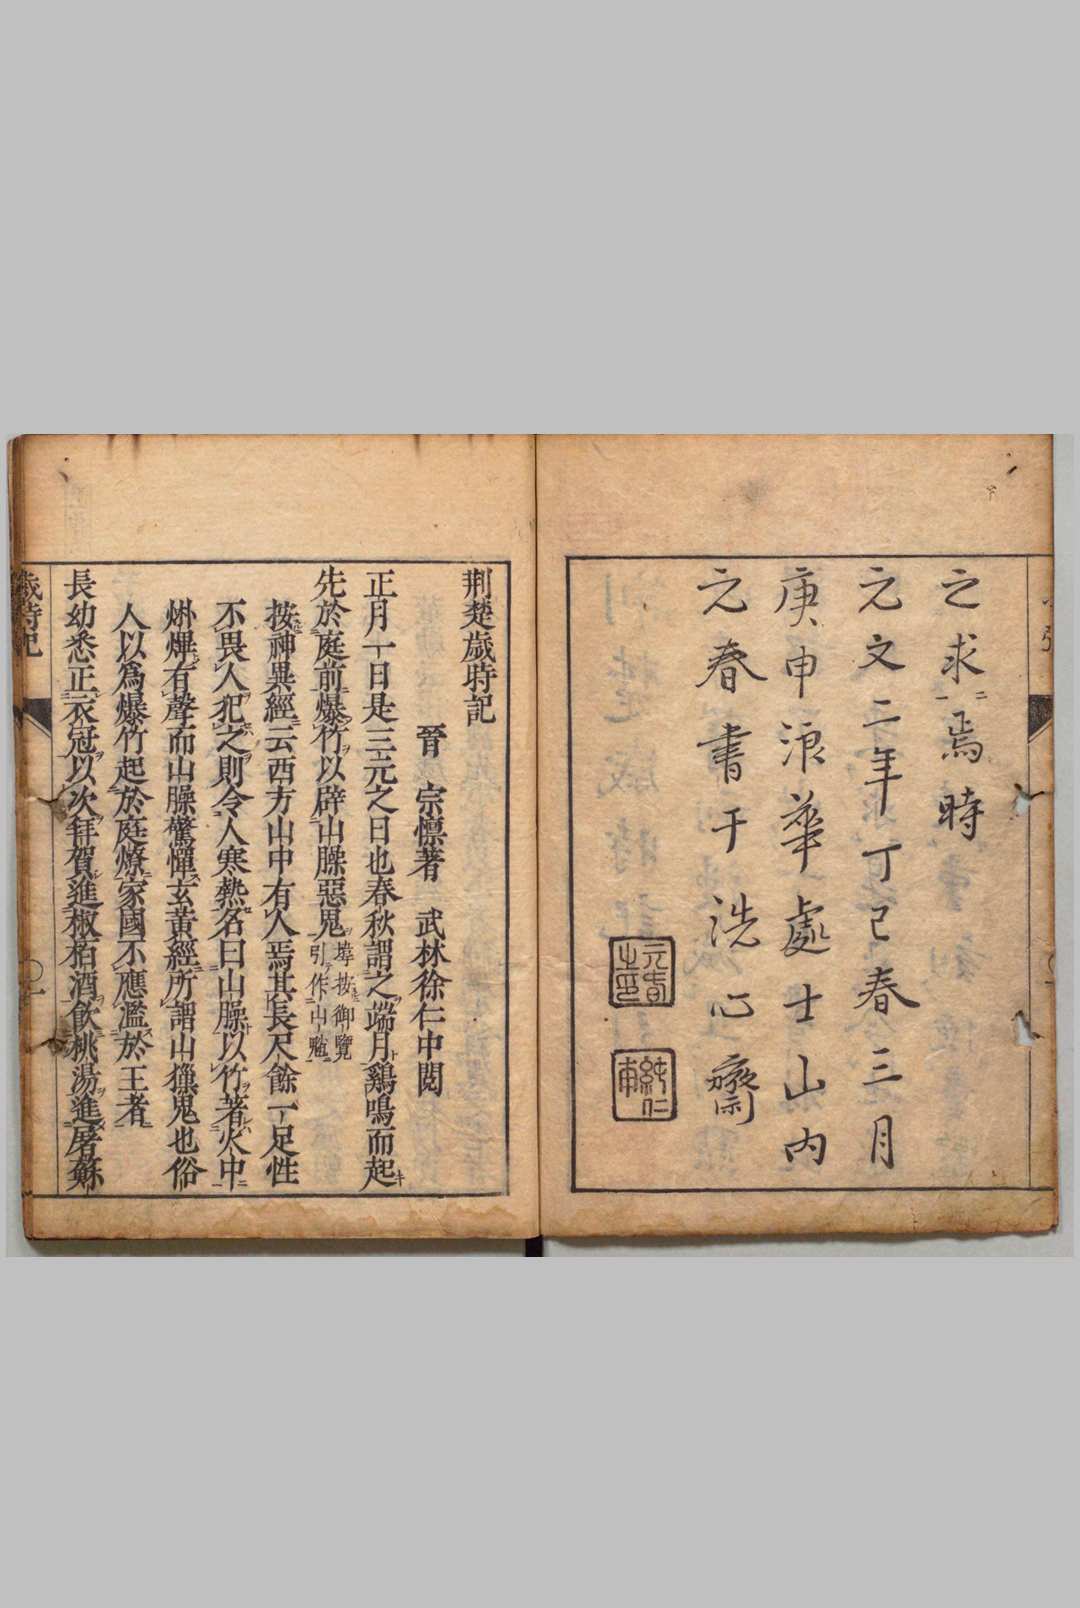 之求焉時
元文二年丁巳春三月
庚申浪華處士山内
元春書于洗心齋
元春之印
純仁甫
荆楚歲時記
晉 宗懍著 武林徐仁中閲
正月一日是三元之日也春秋謂之端月鷄鳴而起
先於庭前爆竹以辟山臊惡鬼
按御覽
引作山魈
按神異經云西方山中有人焉其長尺餘一足性
不畏人犯之則令人寒熱名曰山臊以竹著火中
烞熚有聲而山臊驚憚玄黃經所謂山㺐鬼也俗
人以爲爆竹起於庭燎家國不應濫於王者
長幼悉正衣冠以次拜賀進椒栢酒飲桃湯進屠蘇
歲時記
〇一